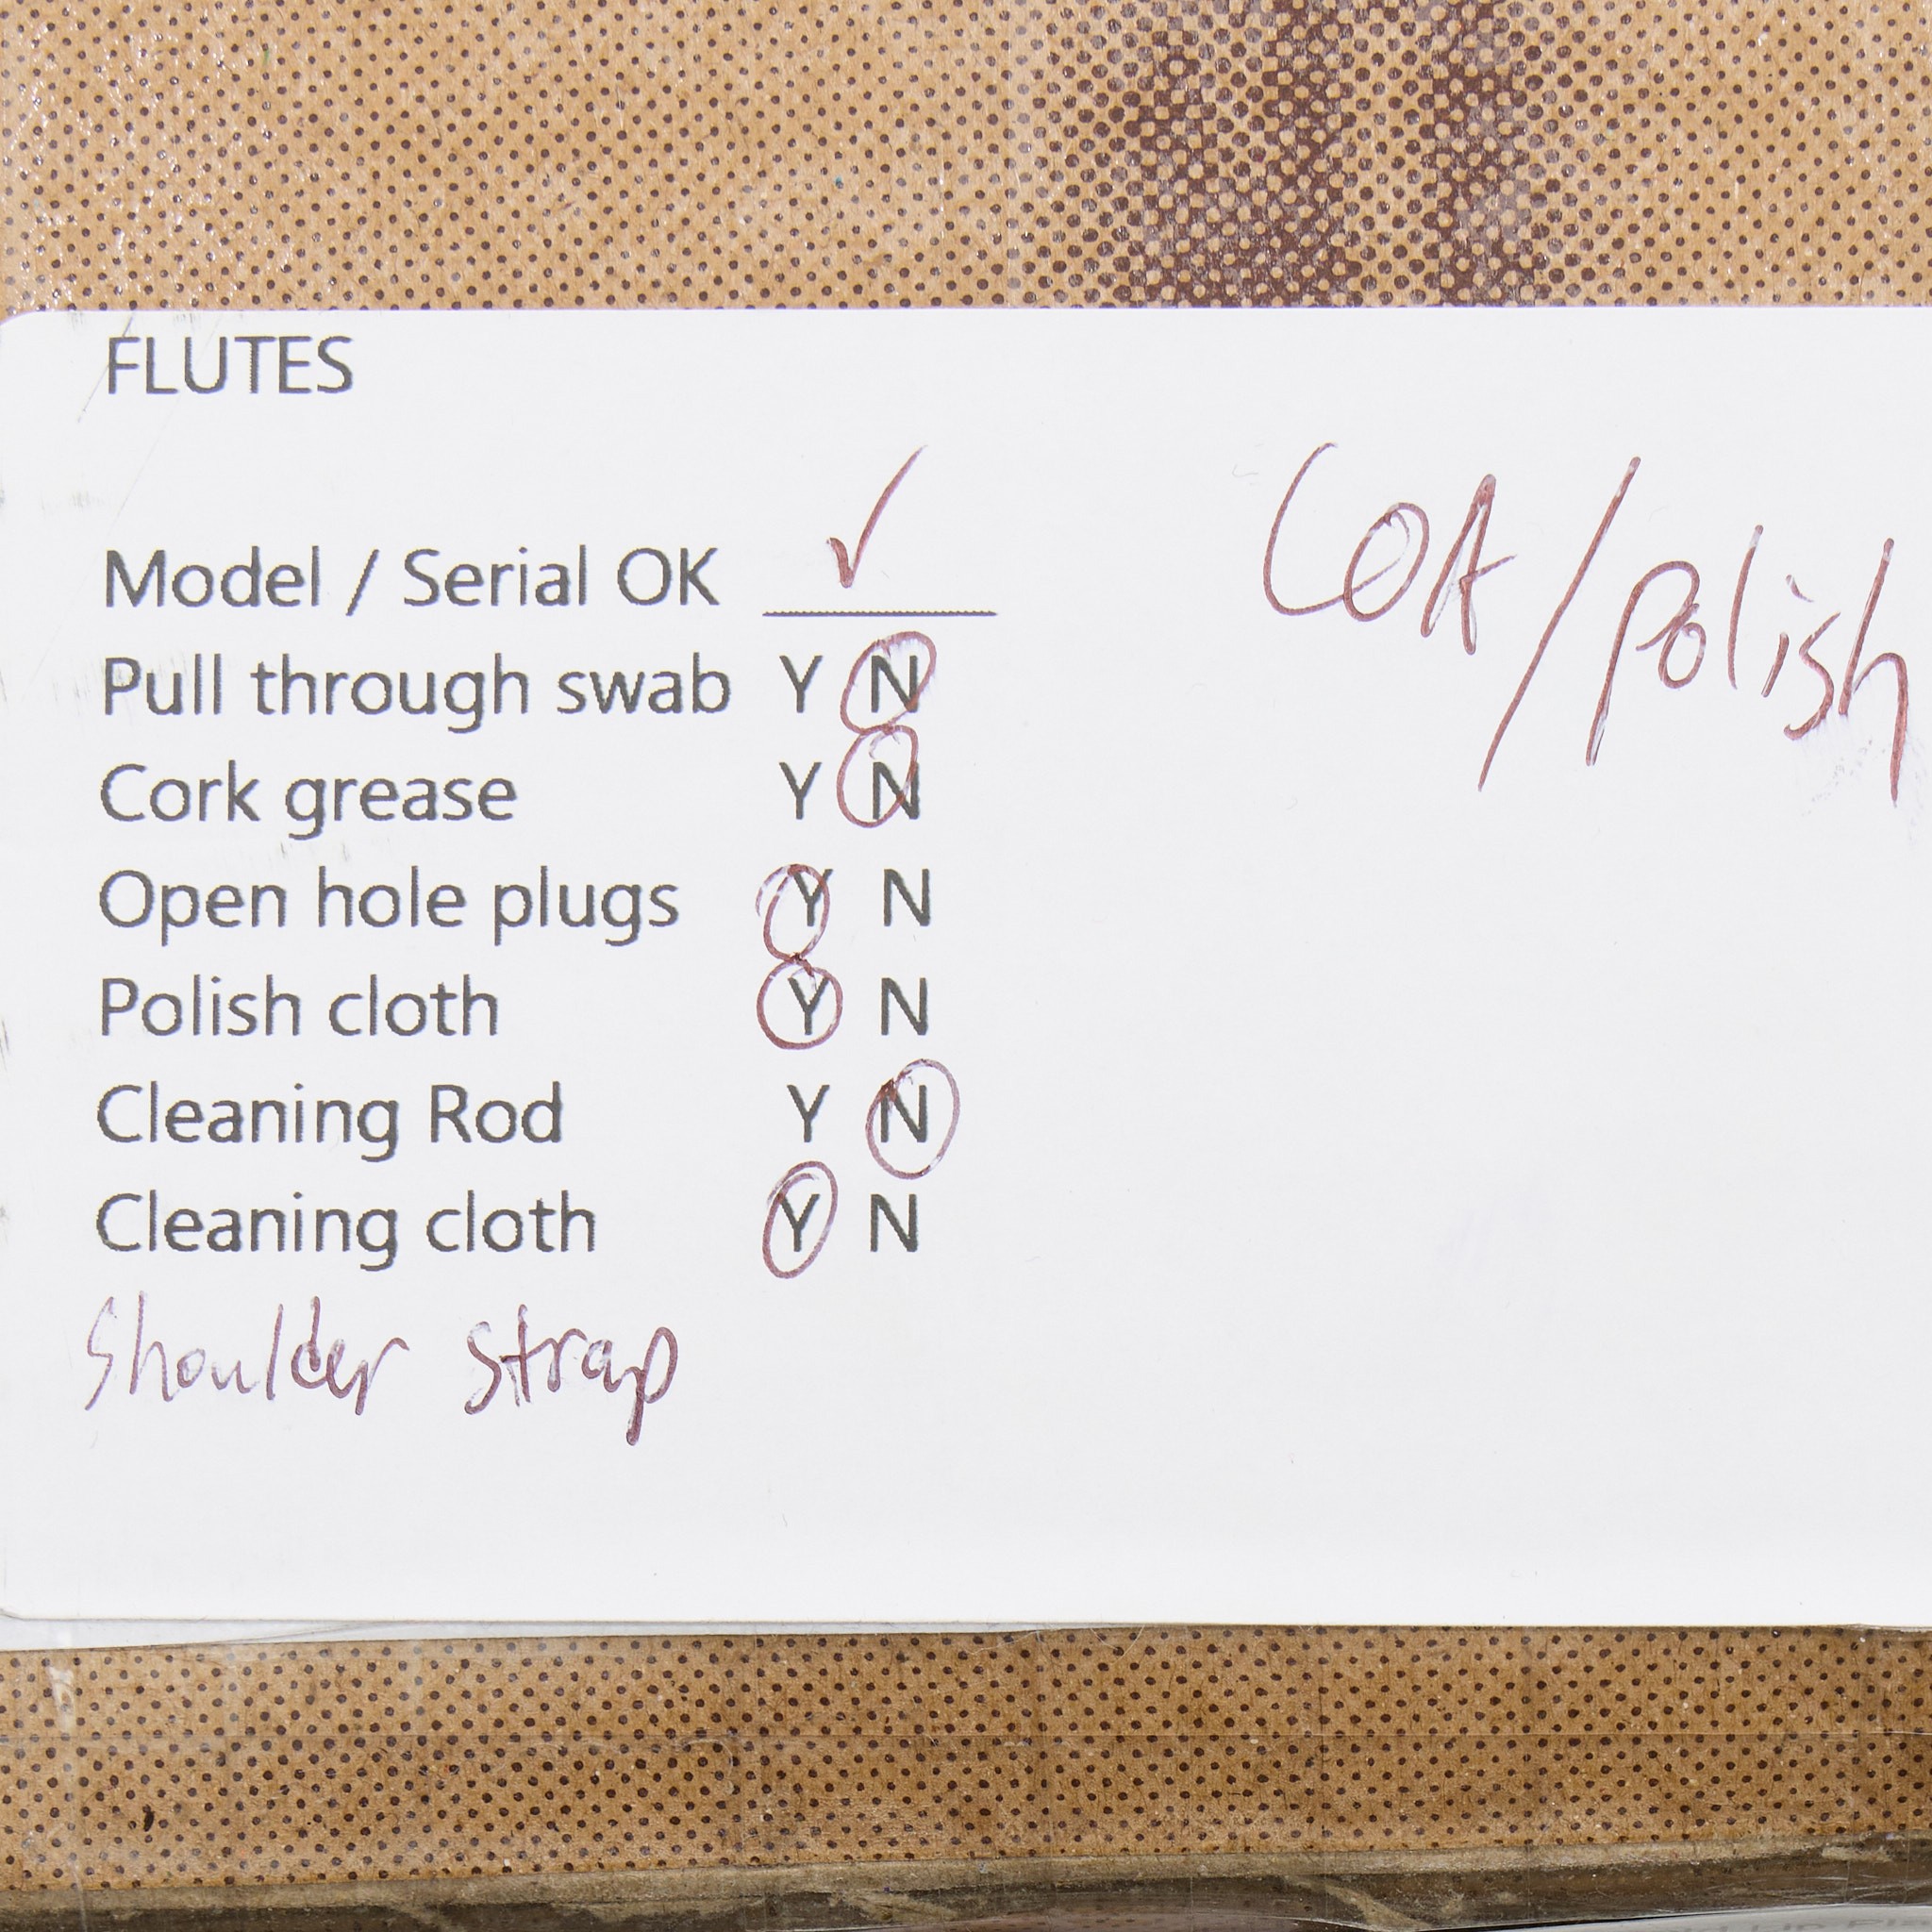 FLUTES
Model / Serial OK ✓
Pull through swab Y N
Cork grease Y N
Open hole plugs Y N
Polish cloth Y N
Cleaning Rod Y N
Cleaning cloth Y N
Shoulder strap
COA/polish